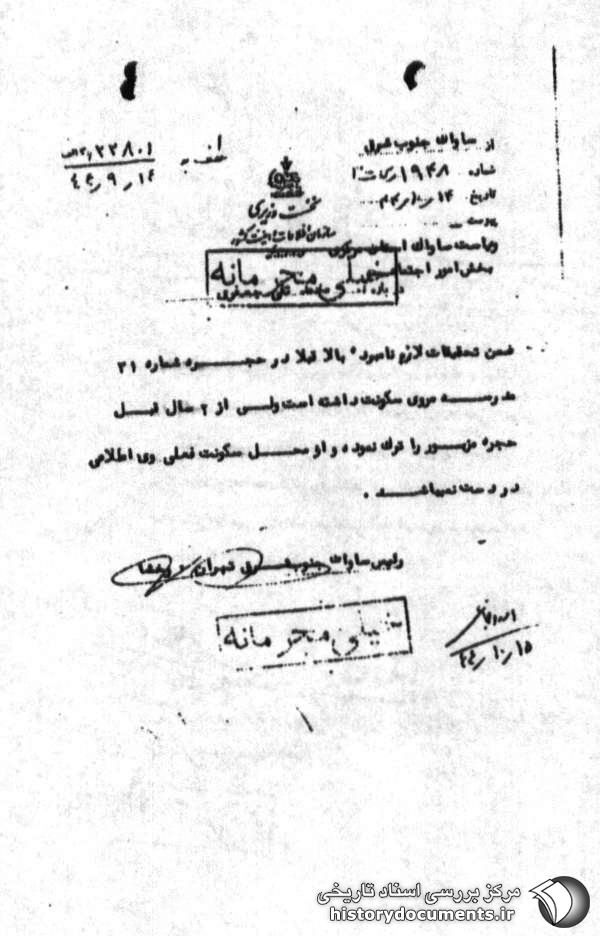 از ساواک جنوب شرق
شماره ۱۹۴۸
تاریخ ۴۴/۱۰/۱۴
پیوست
عطف به
۲۲۸۰۱
۴۴/۹/۱۴
نخست وزیری
سازمان اطلاعات و امنیت کشور
ریاست ساواک استان مرکزی
بخش امور اجتماعی
خیلی محرمانه
درباره محمد تقی جعفری
ضمن تحقیقات لازم نامبرده بالا قبلا در حجره شماره ۲۱
مدرسه مروی سکونت داشته است ولی از ۲ سال قبل
حجره مزبور را ترک نموده و از محل سکونت فعلی وی اطلاعی
در دست نمیباشد.
رئیس ساواک جنوب شرق تهران
خیلی محرمانه
۴۴/۱۰/۱۵
مرکز بررسی اسناد تاریخی
historydocuments.ir